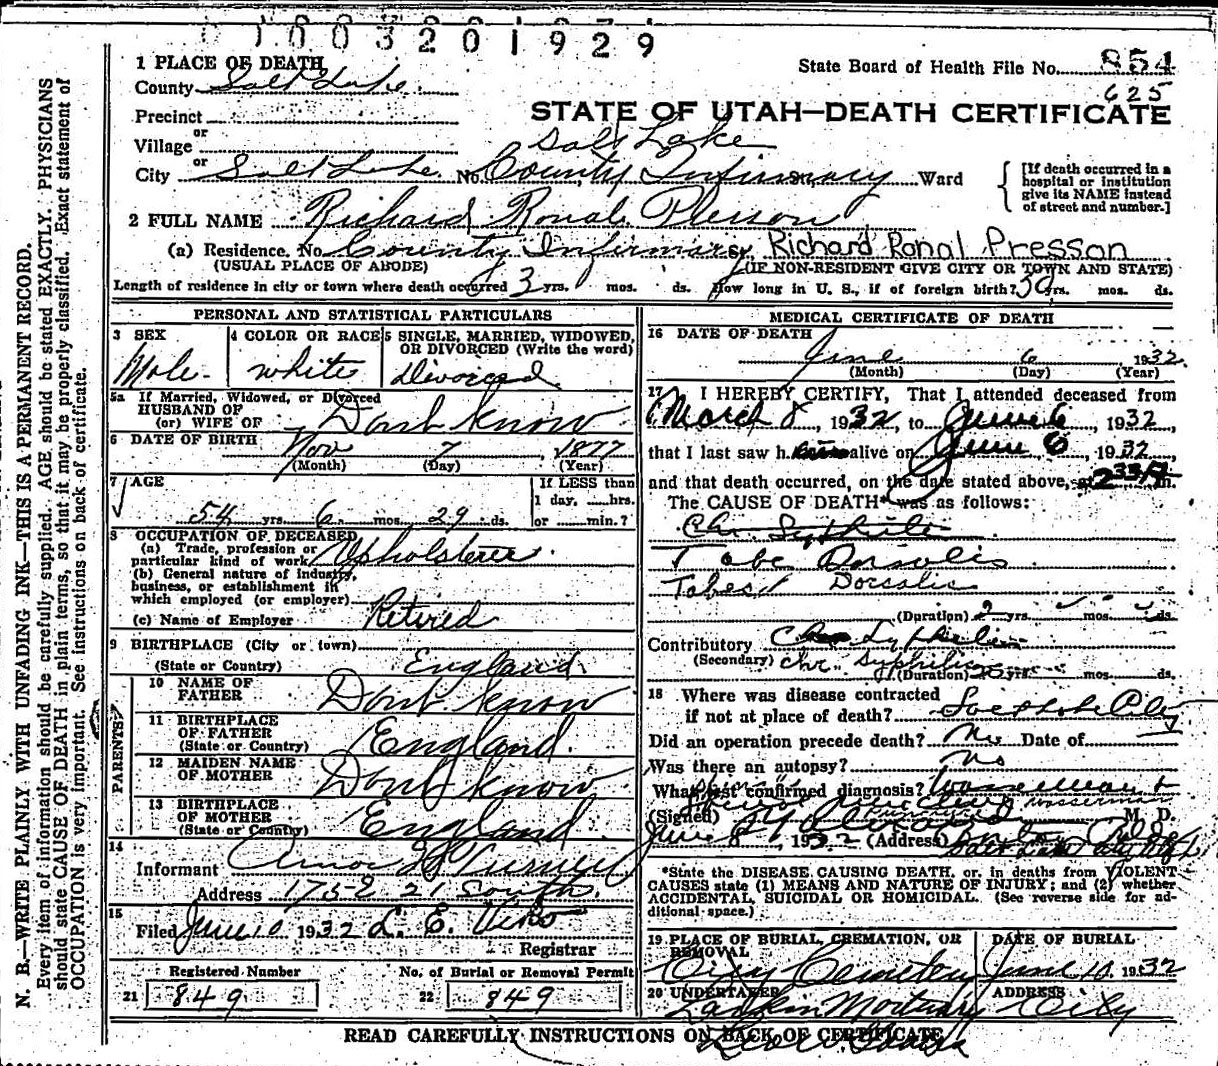 01003201929
1 PLACE OF DEATH
County Salt Lake
State Board of Health File No. 854
625
Precinct
STATE OF UTAH—DEATH CERTIFICATE
or
Village
Salt Lake
or
City Salt Lake No. County Infirmary Ward
[If death occurred in a hospital or institution give its NAME instead of street and number.]
2 FULL NAME Richard Ronal Presson
(a) Residence. No. County Infirmary St. Richard Ronal Presson
(USUAL PLACE OF ABODE) (IF NON-RESIDENT GIVE CITY OR TOWN AND STATE)
Length of residence in city or town where death occurred 3 yrs. mos. ds. How long in U. S., if of foreign birth? 30 yrs. mos. ds.
PERSONAL AND STATISTICAL PARTICULARS
3 SEX Male
4 COLOR OR RACE white
5 SINGLE, MARRIED, WIDOWED, OR DIVORCED (Write the word) Divorced
5a If Married, Widowed, or Divorced
HUSBAND OF
(or) WIFE OF Dont know
6 DATE OF BIRTH Nov 7, 1877
(Month) (Day) (Year)
7 AGE
54 yrs. 6 mos. 29 ds.
If LESS than
1 day, hrs.
or min.?
8 OCCUPATION OF DECEASED
(a) Trade, profession or
particular kind of work Upholsterer
(b) General nature of industry,
business, or establishment in
which employed (or employer)
(c) Name of Employer Retired
9 BIRTHPLACE (City or town)
(State or Country) England
PARENTS
10 NAME OF
FATHER Dont know
11 BIRTHPLACE
OF FATHER
(State or Country) England
12 MAIDEN NAME
OF MOTHER Dont know
13 BIRTHPLACE
OF MOTHER
(State or Country) England
14
Informant
Address 21 South
15
Filed June 10 1932 L. E. Viko
Registrar
Registered Number No. of Burial or Removal Permit
21 849 22 849
MEDICAL CERTIFICATE OF DEATH
16 DATE OF DEATH
June 6 1932
(Month) (Day) (Year)
17 I HEREBY CERTIFY, That I attended deceased from
March 8, 1932, to June 6, 1932,
that I last saw h alive on June 6, 1932
and that death occurred, on the date stated above, at 2 33 A m.
The CAUSE OF DEATH* was as follows:
Chr. Syphilis
Tabe Dorsalis
Tabes Dorsalis
(Duration) yrs. mos. ds.
Contributory Chr Syphilis
(Secondary) chr. syphilis
(Duration) yrs. mos. ds.
18 Where was disease contracted
if not at place of death?
Did an operation precede death? No Date of
Was there an autopsy? No
What test confirmed diagnosis? Wasserman +
Wasserman
(Signed) M. D.
June 8, 1932 (Address)
*State the DISEASE CAUSING DEATH, or, in deaths from VIOLENT
CAUSES state (1) MEANS AND NATURE OF INJURY; and (2) whether
ACCIDENTAL, SUICIDAL OR HOMICIDAL. (See reverse side for ad-
ditional space.)
19 PLACE OF BURIAL, CREMATION, OR
REMOVAL
City Cemetery
DATE OF BURIAL
June 10, 1932
20 UNDERTAKER
Larkin Mortuary
ADDRESS
City
READ CAREFULLY INSTRUCTIONS ON BACK OF CERTIFICATE
N. B.—WRITE PLAINLY WITH UNFADING INK—THIS IS A PERMANENT RECORD.
Every item of information should be carefully supplied. AGE should be stated EXACTLY. PHYSICIANS
should state CAUSE OF DEATH in plain terms, so that it may be properly classified. Exact statement of
OCCUPATION is very important. See instructions on back of certificate.